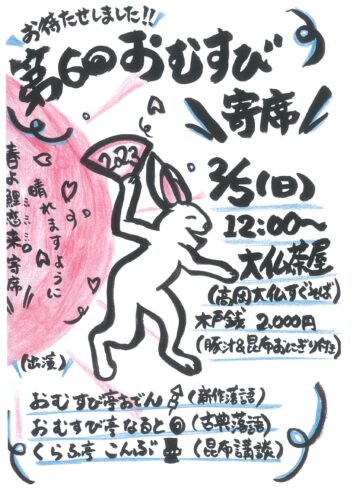 お待たせしました!!
第6回おむすび
寄席
2023
春よ鯉恋来い寄席
晴れますように
2/5(日)
12:00〜
大仏茶屋
(高岡大仏すぐそば)
木戸銭 2,000円
(豚汁&昆布おにぎり付き)
(出演)
おむすび亭おでん (新作落語)
おむすび亭なると (古典落語)
くらふ亭こんぶ (昆布講談)